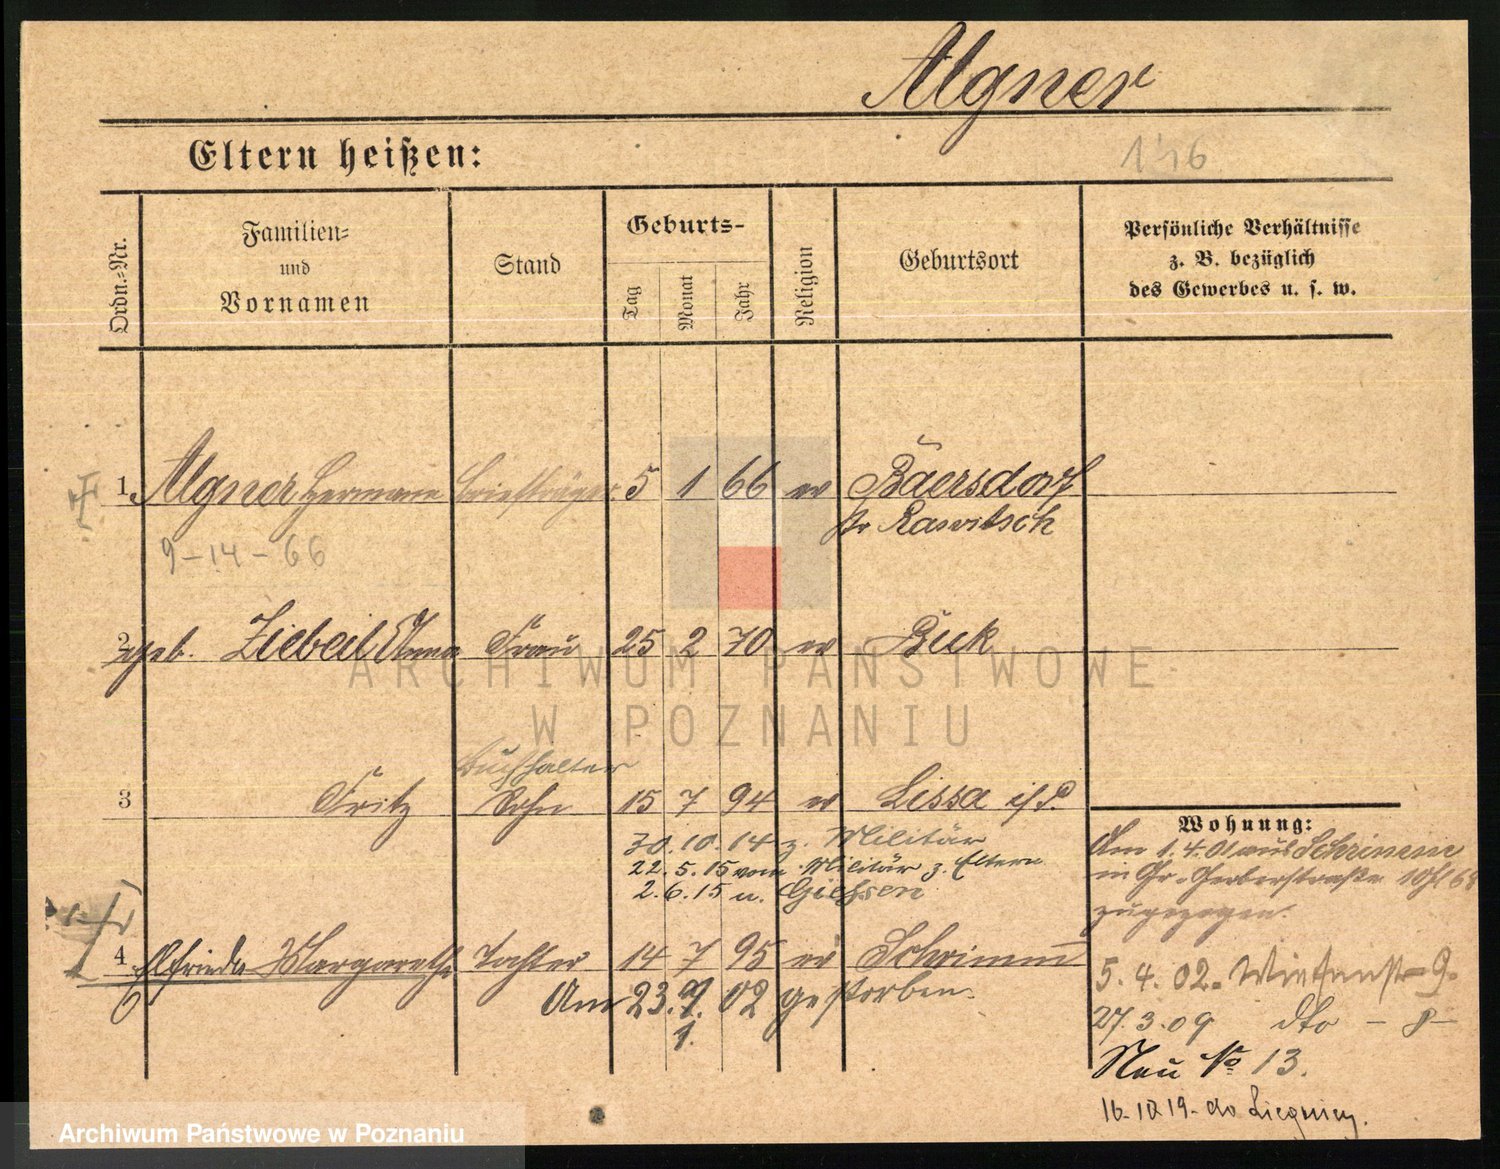 Algner
Eltern heißen:
146
Ordn.-Nr.
Familien-
und
Vornamen
Stand
Geburts-
Tag
Monat
Jahr
Religion
Geburtsort
Persönliche Verhältnisse
z. B. bezüglich
des Gewerbes u. s. w.
1 Algner Hermann Briefträger 5 1 66 ev Baersdorf
Kr Rawitsch
9-14-66
2 geb. Ziebeil Anna Frau 25 2 70 ev Buk
ARCHIWUM PAŃSTWOWE
W POZNANIU
Buchhalter
3 Fritz Sohn 15 7 94 ev Lissa i/P.
30.10.14 z. Militär
22.5.15 vom Militär z. Eltern
2.6.15 n. Gießen
4 Elfriede Margarethe Tochter 14 7 95 ev Schrimm
Am 23. 9. 02 gestorben.
1.
Wohnung:
Am 1.4.01 aus Schrimm
in Gr. Gerberstraße
zugezogen.
5.4.02. 9.
27.3.09 dto - 8-
Neu No 13.
do Liegnitz.
Archiwum Państwowe w Poznaniu